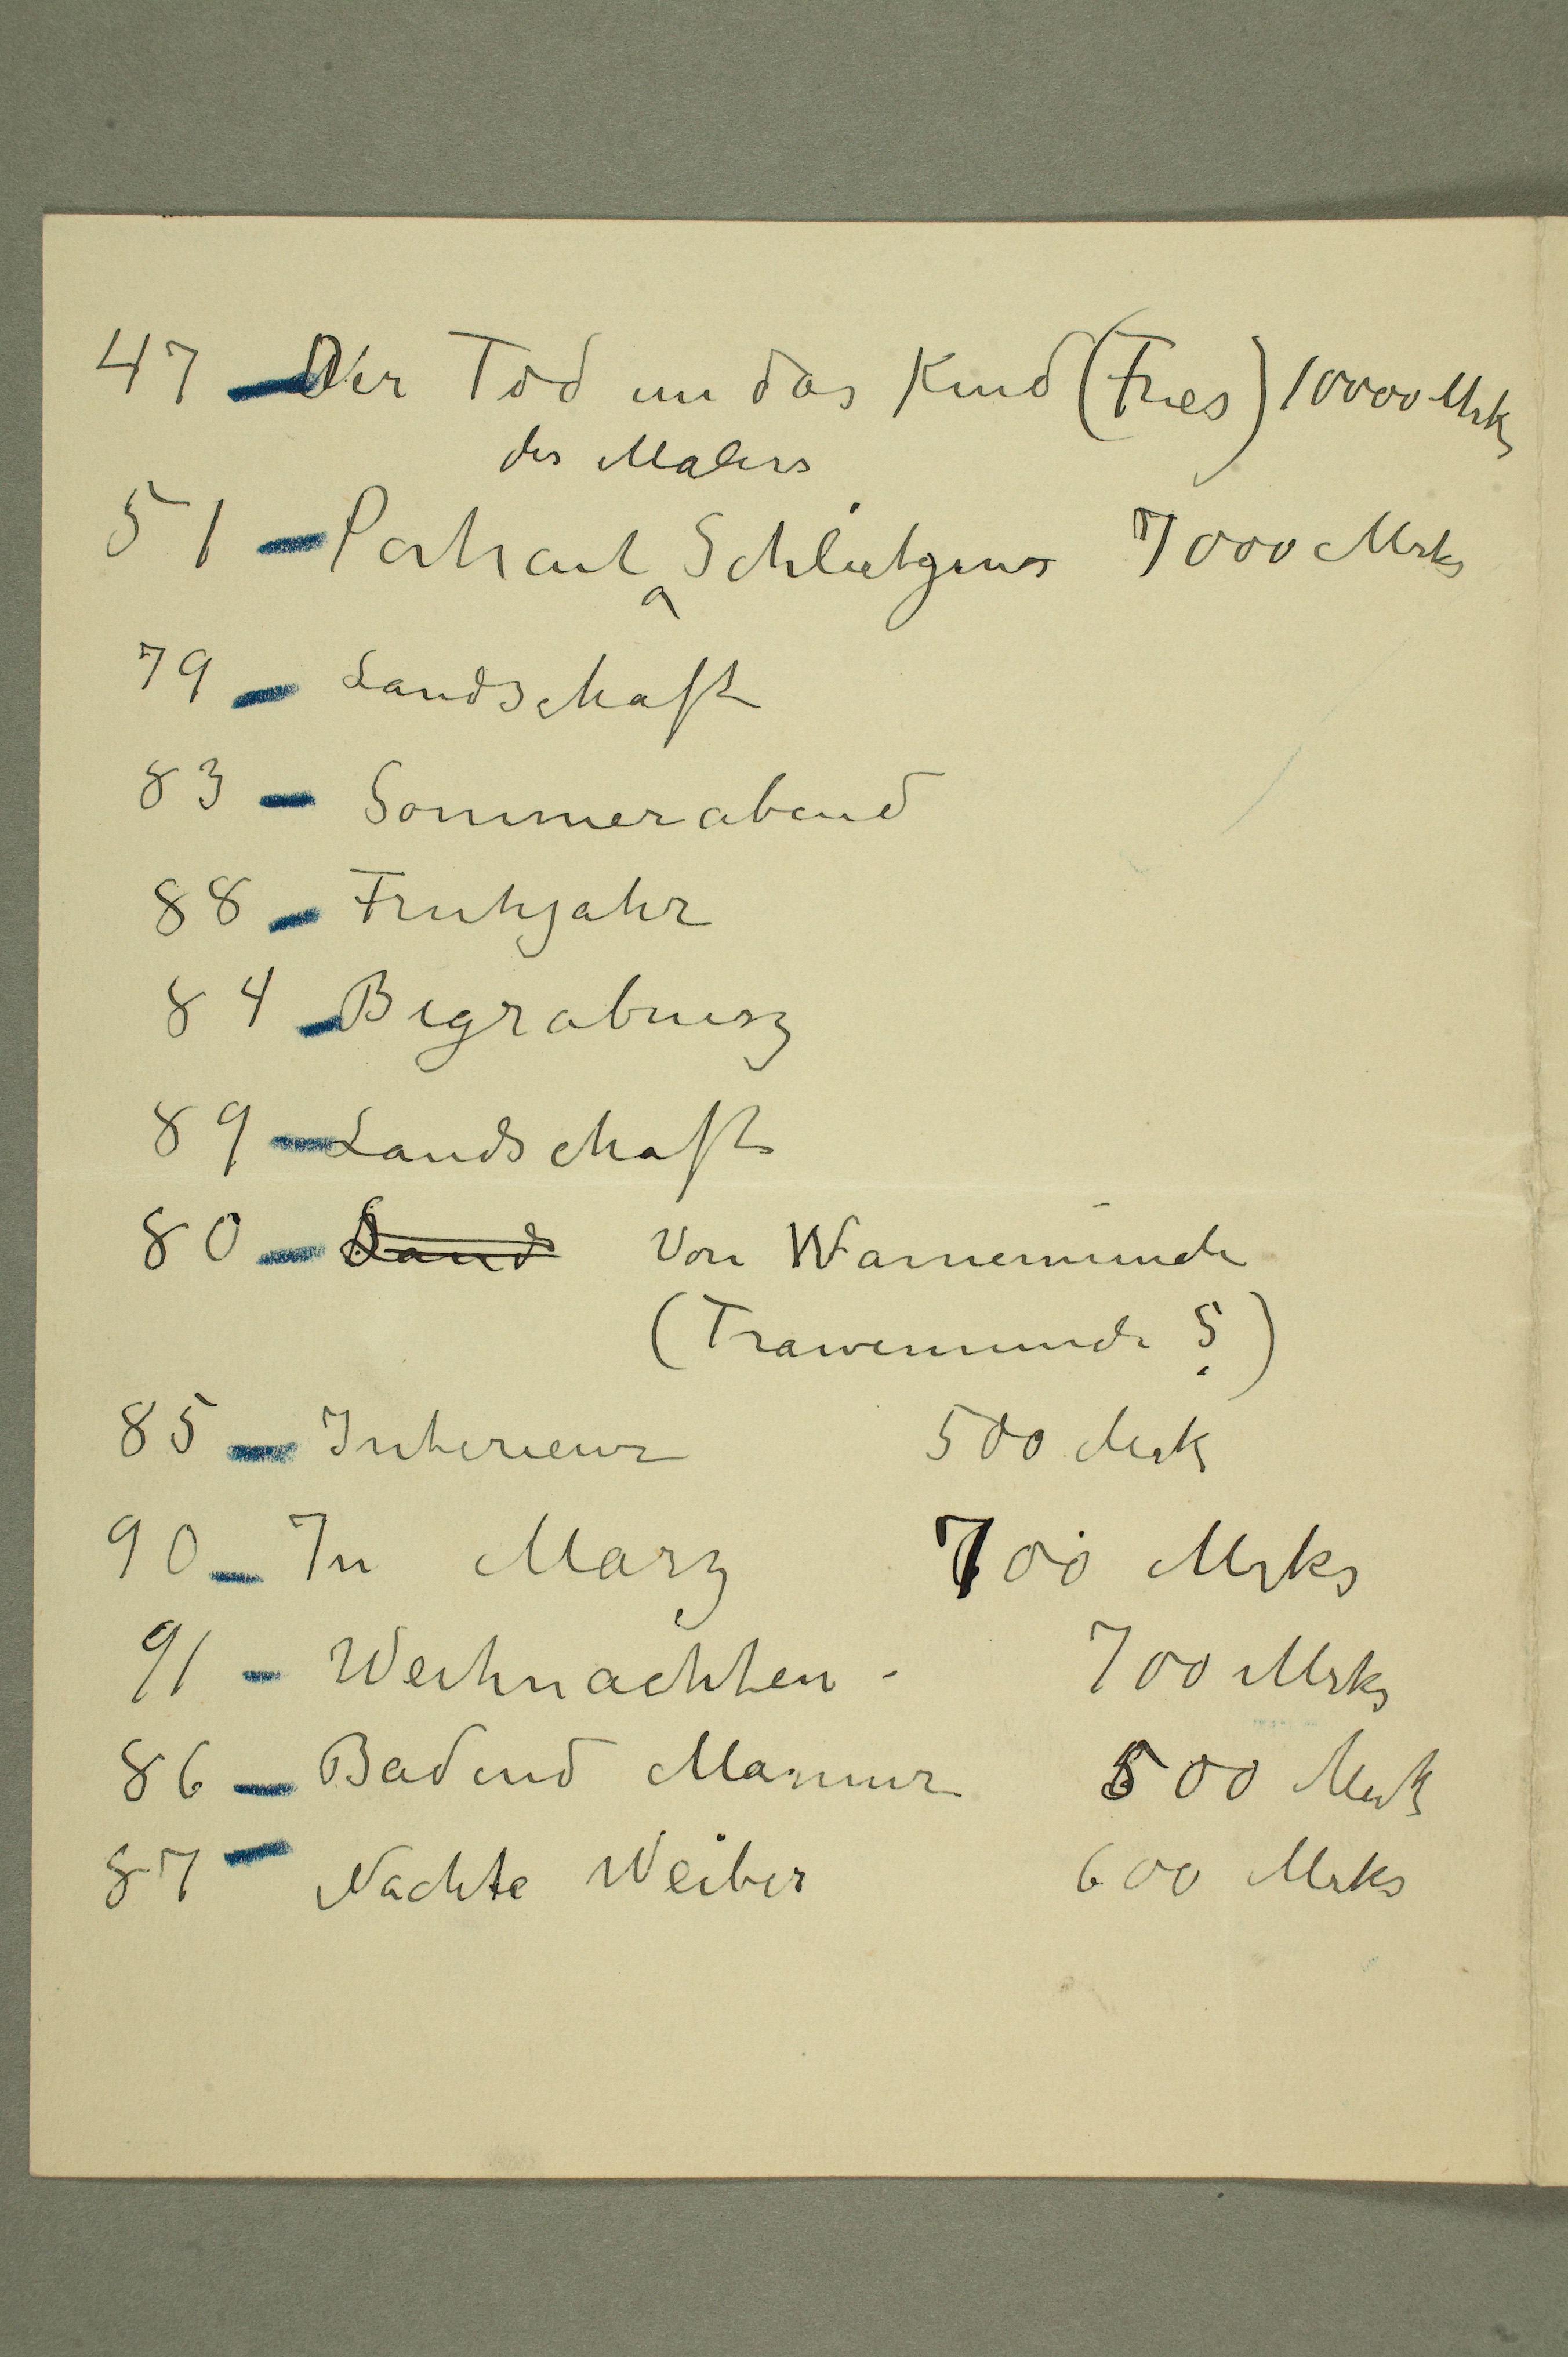 47 – Der Tod un das Kind (Fries) 10000 Mrks
des Malers
51 – Portrait Schlietgens 7000 Mrks
79 – Landschaft
83 – Sommerabend
88 – Fruhjahr
84 – Begrabnisz
89 – Landschaft
80 – Land Von Warnemunde
(Trawemunde ?)
85 – Interieur 500 Mrk
90 – In Marz 700 Mrks
91 – Weihnachten - 700 Mrks
86 – Badend Manner 500 Mrk
87 – Nachte Weiber 600 Mrks